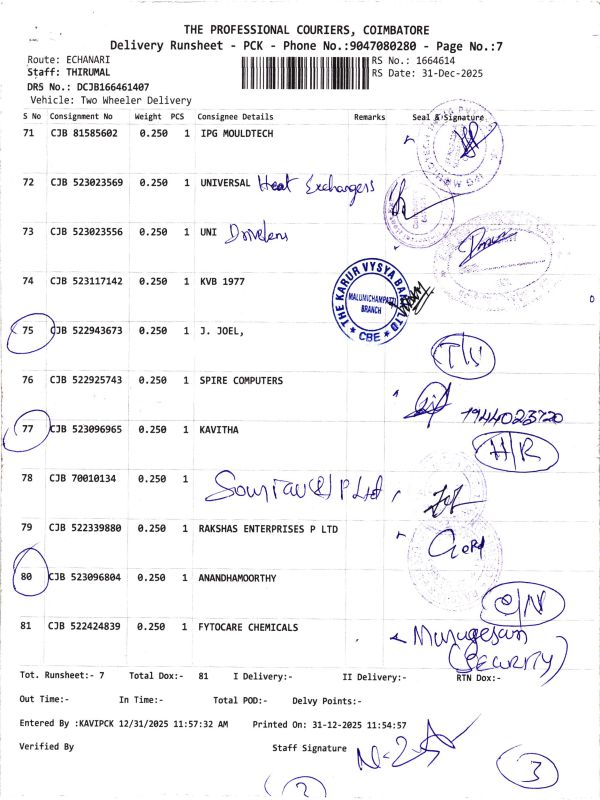 THE PROFESSIONAL COURIERS, COIMBATORE
Delivery Runsheet - PCK - Phone No.:9047080280 - Page No.:7
Route: ECHANARI RS No.: 1664614
Staff: THIRUMAL RS Date: 31-Dec-2025
DRS No.: DCJB166461407
Vehicle: Two Wheeler Delivery
S No Consignment No Weight PCS Consignee Details Remarks Seal & Signature
71 CJB 81585602 0.250 1 IPG MOULDTECH
72 CJB 523023569 0.250 1 UNIVERSAL Heat Exchangers
73 CJB 523023556 0.250 1 UNI
74 CJB 523117142 0.250 1 KVB 1977
THE KARUR VYSYA BANK LTD
MALUMICHAMPATTI
BRANCH
* CBE *
75 CJB 522943673 0.250 1 J. JOEL,
76 CJB 522925743 0.250 1 SPIRE COMPUTERS
77 CJB 523096965 0.250 1 KAVITHA H/R
78 CJB 70010134 0.250 1
79 CJB 522339880 0.250 1 RAKSHAS ENTERPRISES P LTD
80 CJB 523096804 0.250 1 ANANDHAMOORTHY
81 CJB 522424839 0.250 1 FYTOCARE CHEMICALS Murugesan
(SECURITY)
Tot. Runsheet:- 7 Total Dox:- 81 I Delivery:- II Delivery:- RTN Dox:-
Out Time:- In Time:- Total POD:- Delvy Points:-
Entered By :KAVIPCK 12/31/2025 11:57:32 AM Printed On: 31-12-2025 11:54:57
Verified By Staff Signature
3